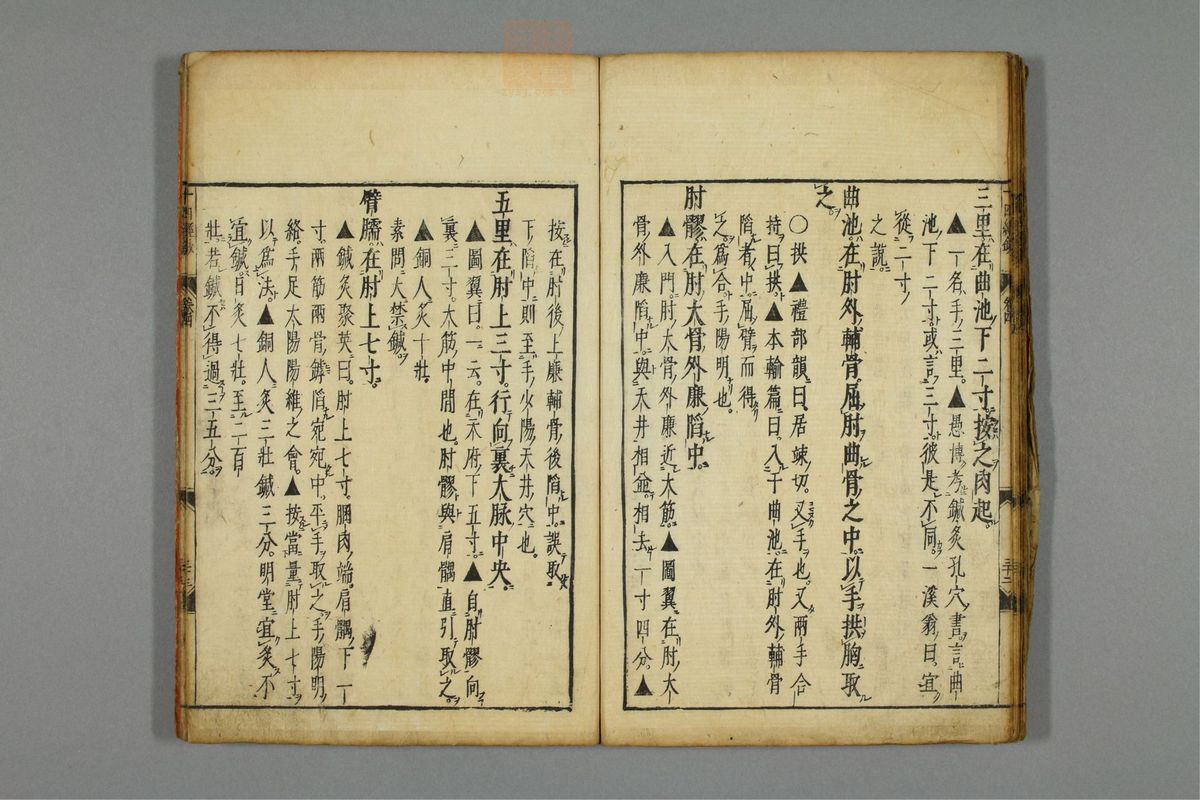 三里在曲池下二寸按之肉起。
▲一名手三里。▲愚博考鍼灸孔穴書言曲
池下二寸或言三寸。彼是不同。一溪翁曰。宜
從二寸
之說。
曲池。在肘外輔骨。屈肘曲骨之中。以手拱胸取
之。
○拱▲禮部韻曰。居竦切。又手也。又兩手合
持曰拱。▲本輸篇曰。入于曲池。在肘外輔骨
陷者中。屈臂而得
之。爲合。手陽明也。
肘髎在肘大骨外廉陷中。
▲入門。肘大骨外廉近大筋。▲圖翼在肘大
骨外廉陷中。與天井相並。相去一寸四分。▲
按在肘後上廉輔骨後陷中。誤取
下陷中則至手少陽天井穴也。
五里在肘上三寸。行向裏大脉中央。
▲圖翼曰。一云。在天府下五寸。▲自肘髎向
裏三寸。大筋中間也。肘髎與肩髃直引取之。
▲銅人灸十壯。
素問大禁鍼。
臂臑在肘上七寸。
▲鍼灸聚英曰。肘上七寸。膕肉端。肩髃下一
寸。兩筋兩骨罅陷宛宛中。平手取之。手陽明
絡。手足太陽陽維之會。▲按當量肘上七寸
以爲法。▲銅人灸三壯鍼三分。明堂宜灸不
宜鍼。日灸七壯。至二百
壯。若鍼不得過三五分。